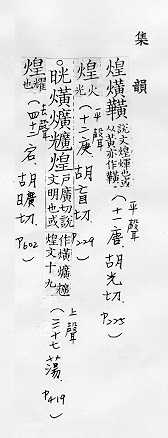 集韻
煌熿韹 說文煌煇也或从黃亦作韹 (平聲 十一唐 胡光切 P225)
煌 火光 (平聲 十二庚 胡盲切 P229)
晄熿爌煌 戶廣切說文明也或作熿爌煌文十九 (上聲 三十七蕩 P419)
煌 耀也 (去聲 四十二宕 胡曠切 P602)